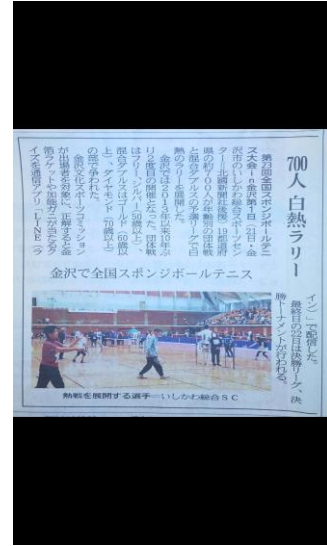 700人 白熱ラリー
金沢で全国スポンジボールテニス
第23回全国スポンジボールテニ
ス大会in金沢第1日（21日・金
沢市のいしかわ総合スポーツセン
ター＝北國新聞社後援）19都道府
県の約700人が年齢別の団体戦
と混合ダブルスの予選リーグで白
熱のラリーを展開した。
金沢では2013年以来10年ぶ
り2度目の開催となった。団体戦
はフリー、シルバー（50歳以上）、
混合ダブルスはゴールド（60歳以
上）、ダイヤモンド（70歳以上）
の部で争われた。
金沢文化スポーツコミッション
が出場者を対象に、正解すると金
箔ラケットや加能ガニが当たるク
イズを通信アプリ「LINE（ラ
イン）」で配信した。
最終日の22日は決勝リーグ、決
勝トーナメントが行われる。
熱戦を展開する選手＝いしかわ総合SC